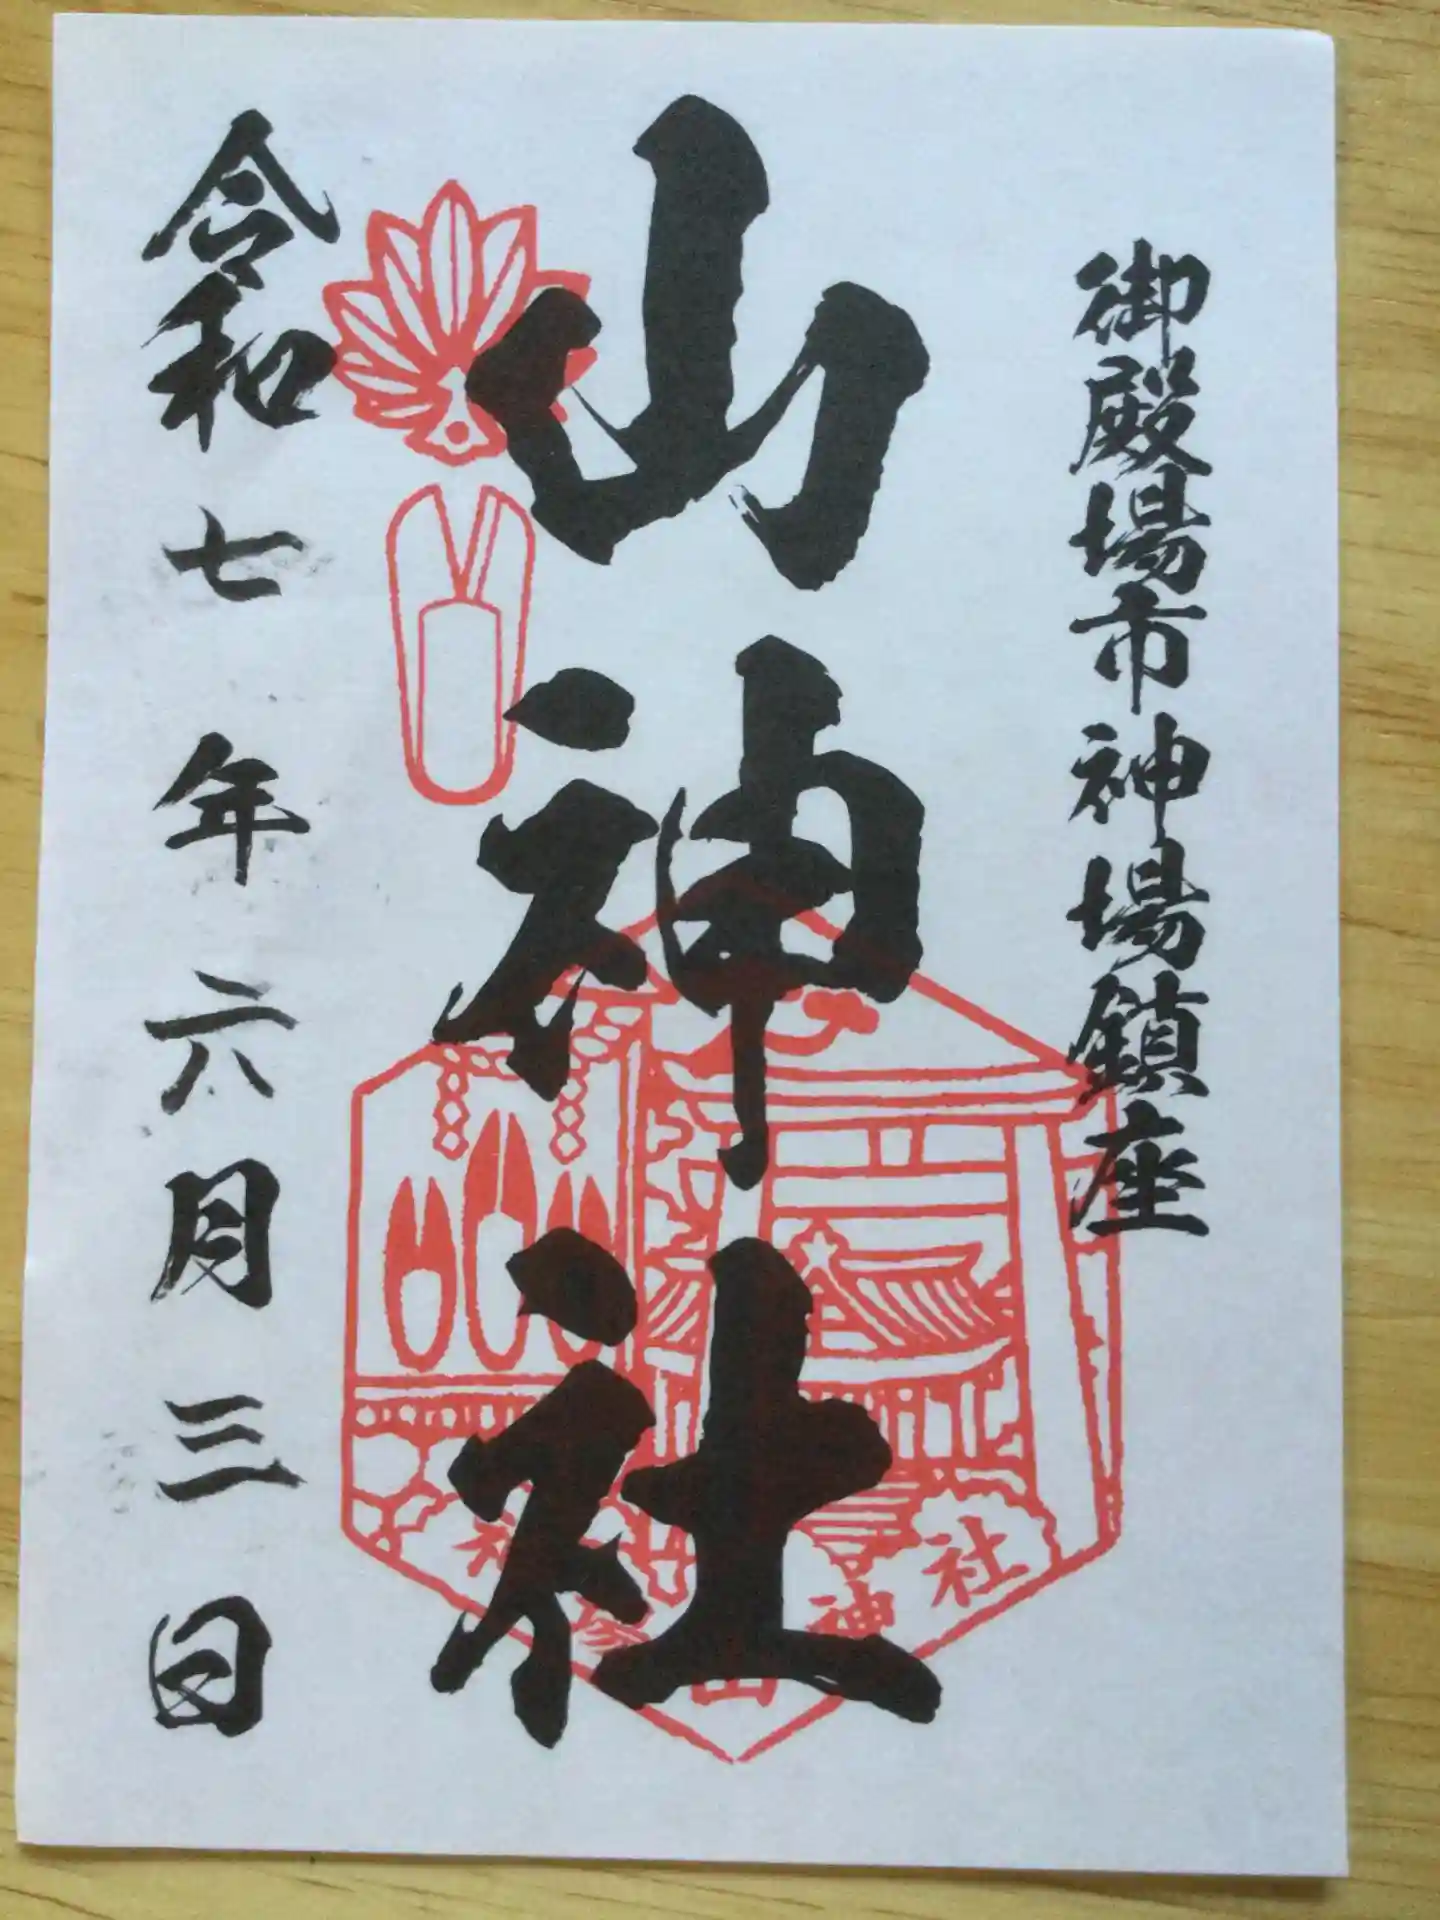 御殿場市神場鎮座
山神社
令和七年六月三日
山神社